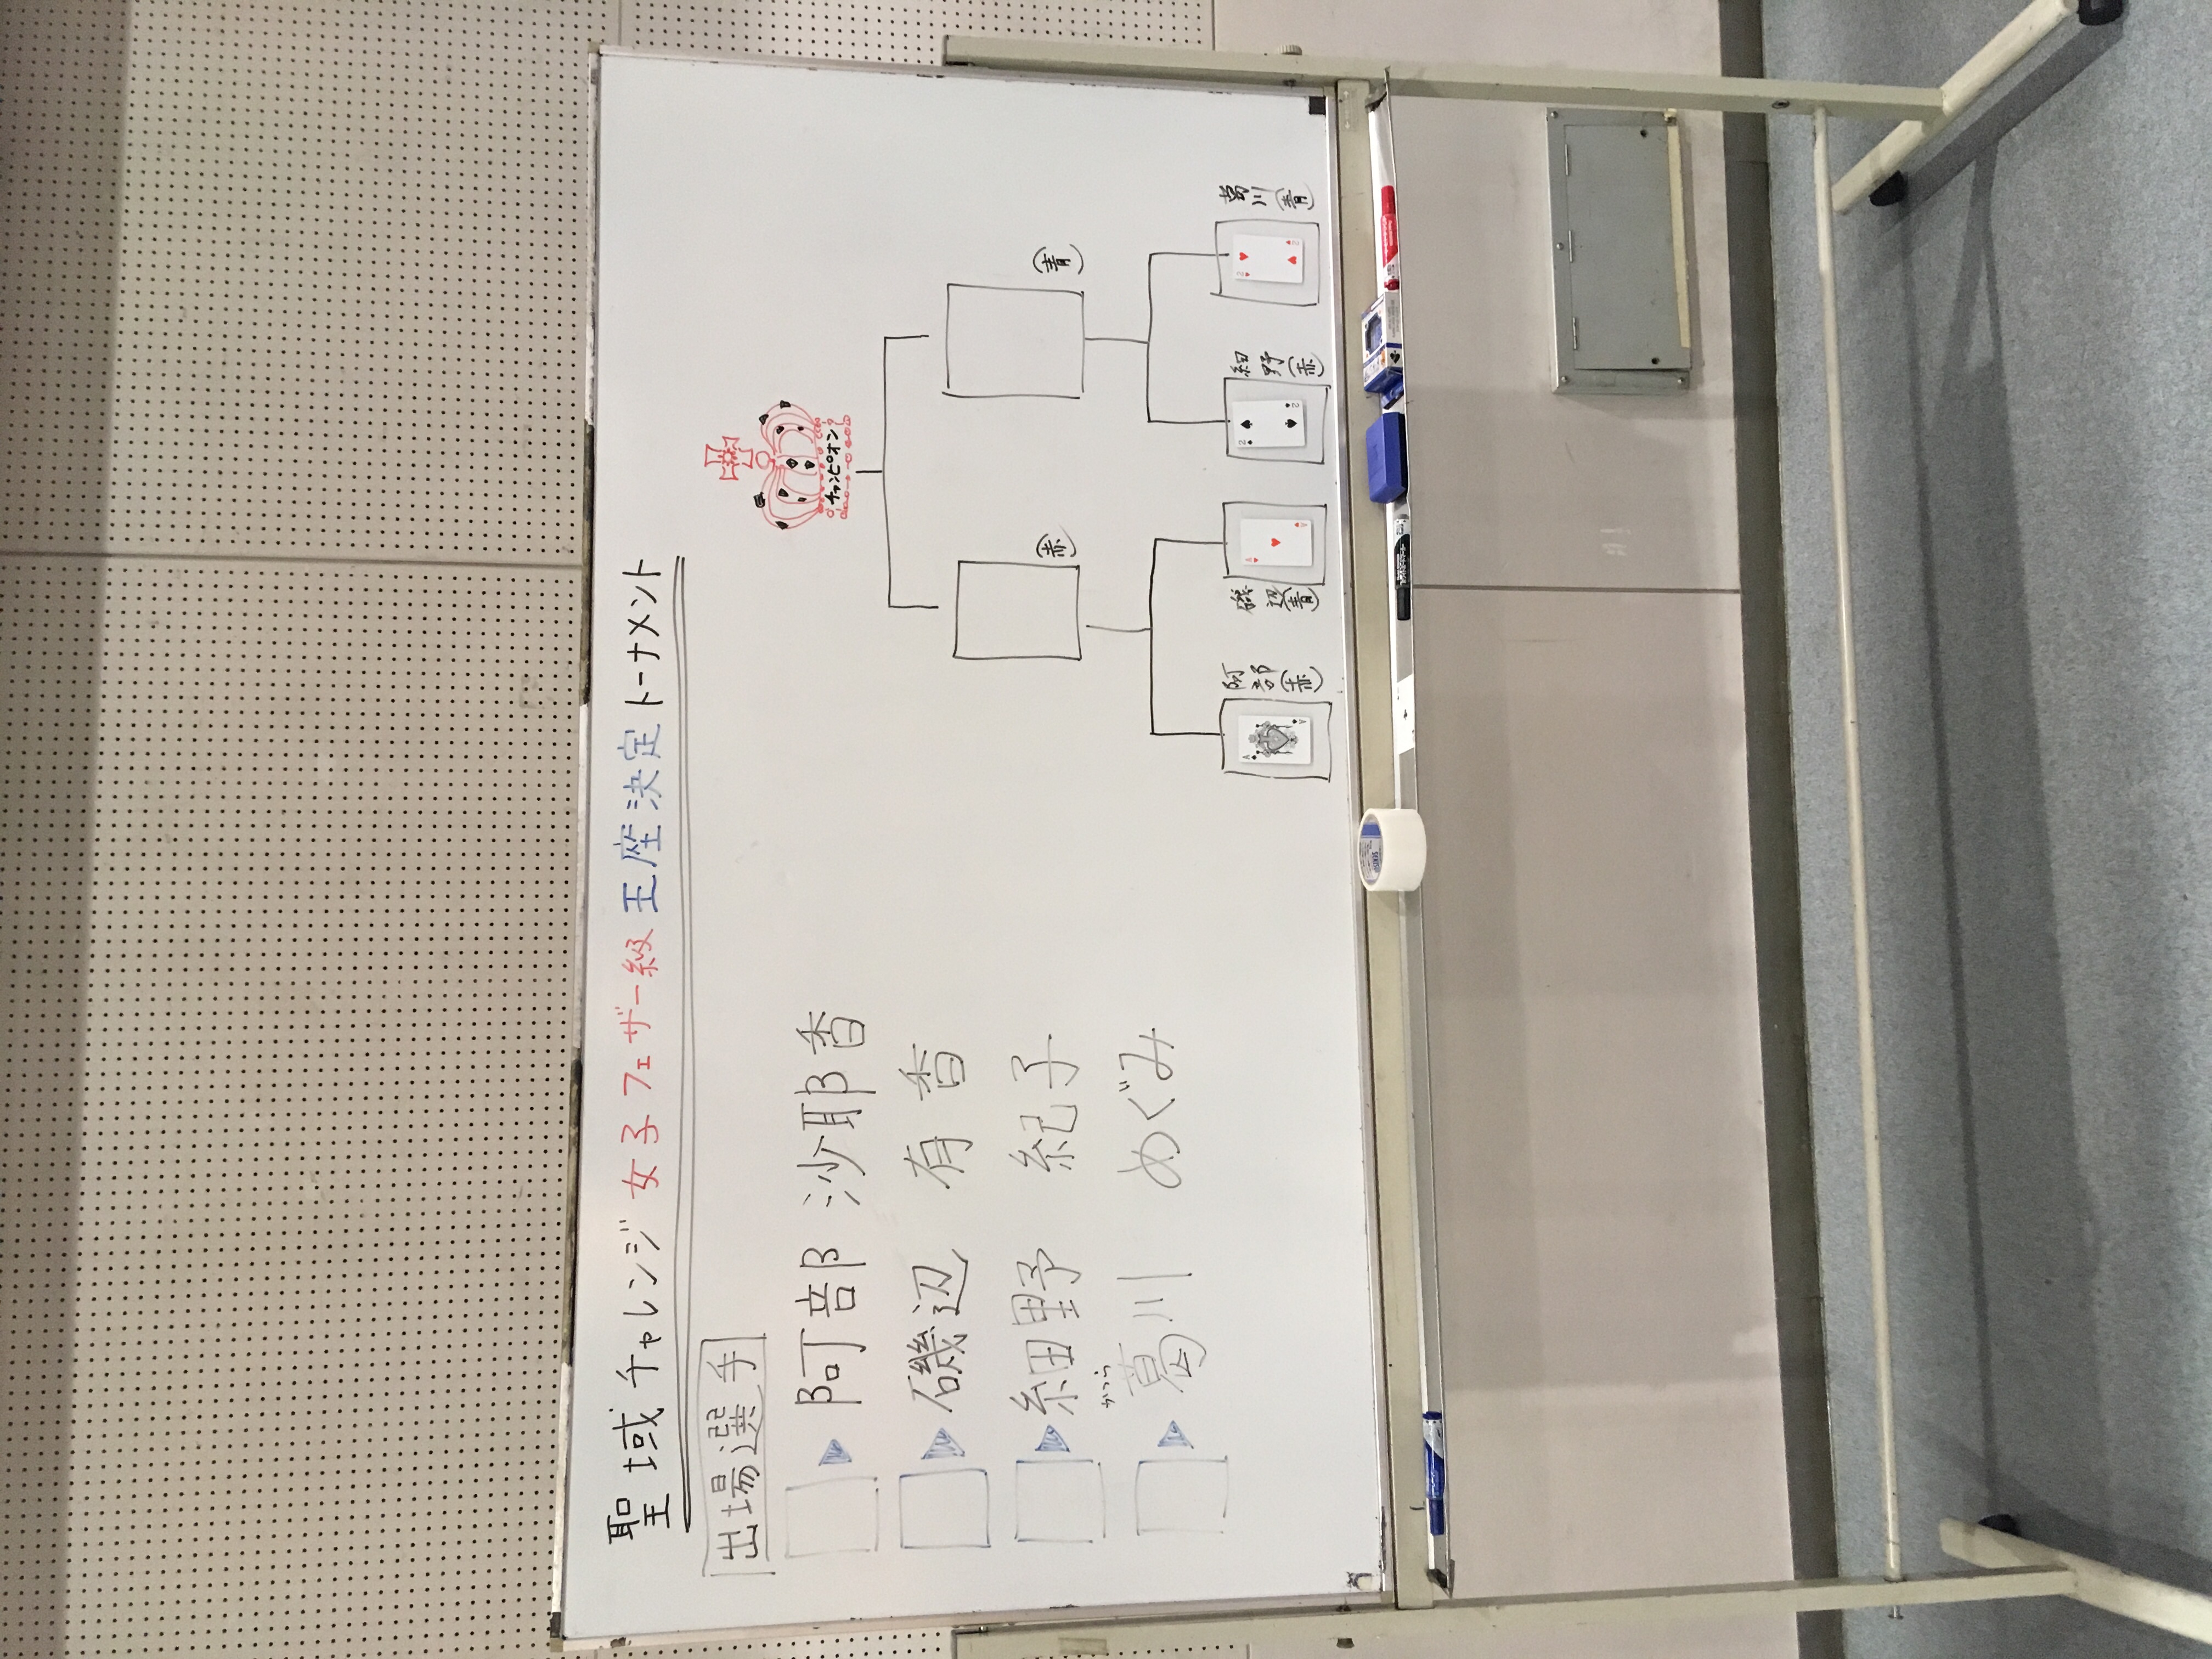 聖域チャレンジ 女子フェザー級 王座決定トーナメント
出場選手
阿部 沙耶香
磯辺 有香
細野 紀子
かつら
葛川 めぐみ
チャンピオン
(赤)
(青)
阿部
(赤)
磯辺
(青)
細野
(赤)
葛川
(青)
A
A
A
A
2
2
2
2